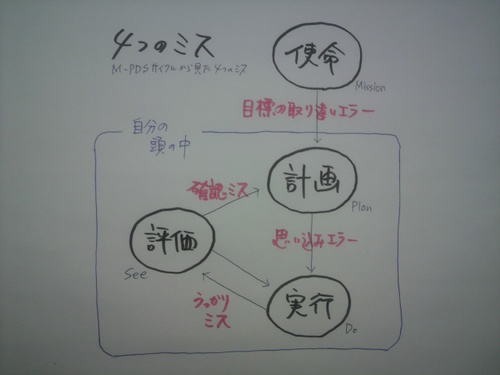 4つのミス
M-PDSサイクルから見た4つのミス
使命
Mission
目標の取り違いエラー
自分の
頭の中
計画
Plan
確認ミス
評価
See
思い込みエラー
うっかり
ミス
実行
Do